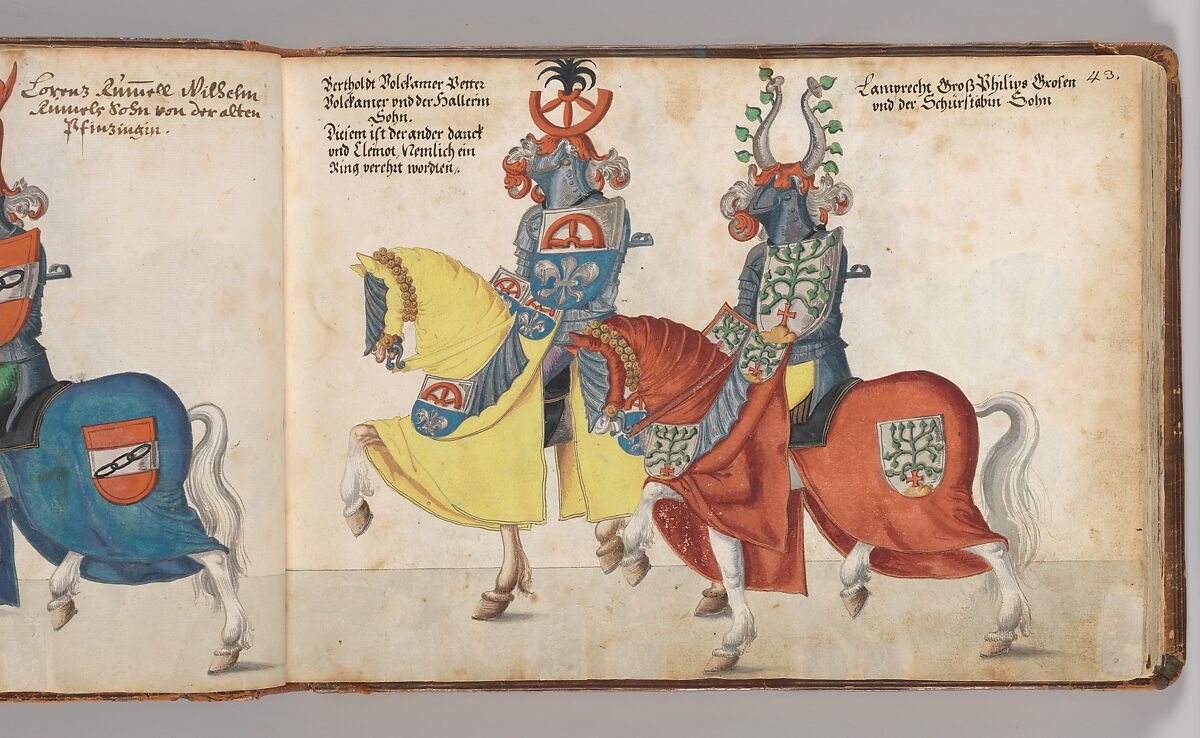 Lorenz Rum̅ell Wilhelm
Rumels Sohn von der alten
Pfinzingin.
Bertholdt Volckamer Petter
Volckamer vnd der Hallerin
Sohn.
Diesem ist der ander danck
vnd Cleinot, Nemlich ein
Ring verehrt wordten.
Lamprecht Groß Philips Grosen
vnd der Schürstäbin Sohn
43.